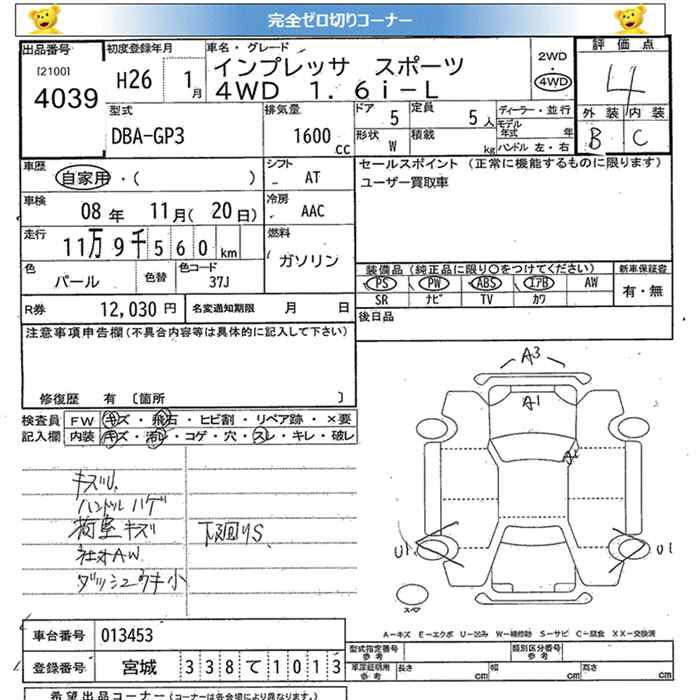 完全ゼロ切りコーナー
出品番号
[2100]
4039
初度登録年月
H26
1月
車名・グレード
インプレッサ スポーツ
4WD 1.6i-L
2WD
・
4WD
評価点
4
外装 内装
B C
型式
DBA-GP3
排気量
1600 cc
ドア 5
定員 5人
形状 W
積載 kg
ディーラー・並行
モデル年式 年
ハンドル 左・右
車歴
自家用・( )
シフト
AT
セールスポイント (正常に機能するものに限ります)
ユーザー買取車
車検
08年 11月(20日)
冷房
AAC
走行
11万9千560km
燃料
ガソリン
色
パール
色替
色コード
37J
装備品(純正品に限り〇をつけてください)
PS PW ABS エアB AW
SR ナビ TV カワ
新車保証書
有・無
R券 12,030円
名変通知期限 月 日
後日品
注意事項申告欄(不具合内容等は具体的に記入して下さい)
修復歴 有 〔箇所 〕
検査員記入欄
FW キズ・飛石・ヒビ割・リペア跡・×要
内装 キズ・汚レ・コゲ・穴・スレ・キレ・破レ
キズU.
ハンドルハゲ
荷室キズ
下廻りS.
社オAW.
ダッシュウキ小
A3
A1
U1
U1
スペア
A-キズ E-エクボ U-凹み W-補修跡 S-サビ C-腐食 XX-交換済
車台番号 013453
型式指定番号 参考
類別区分番号 参考
登録番号 宮城 338て1013
車庫証明用 参考
長さ 幅 高さ
希望出品コーナー(コーナーは各会場により異なります。)